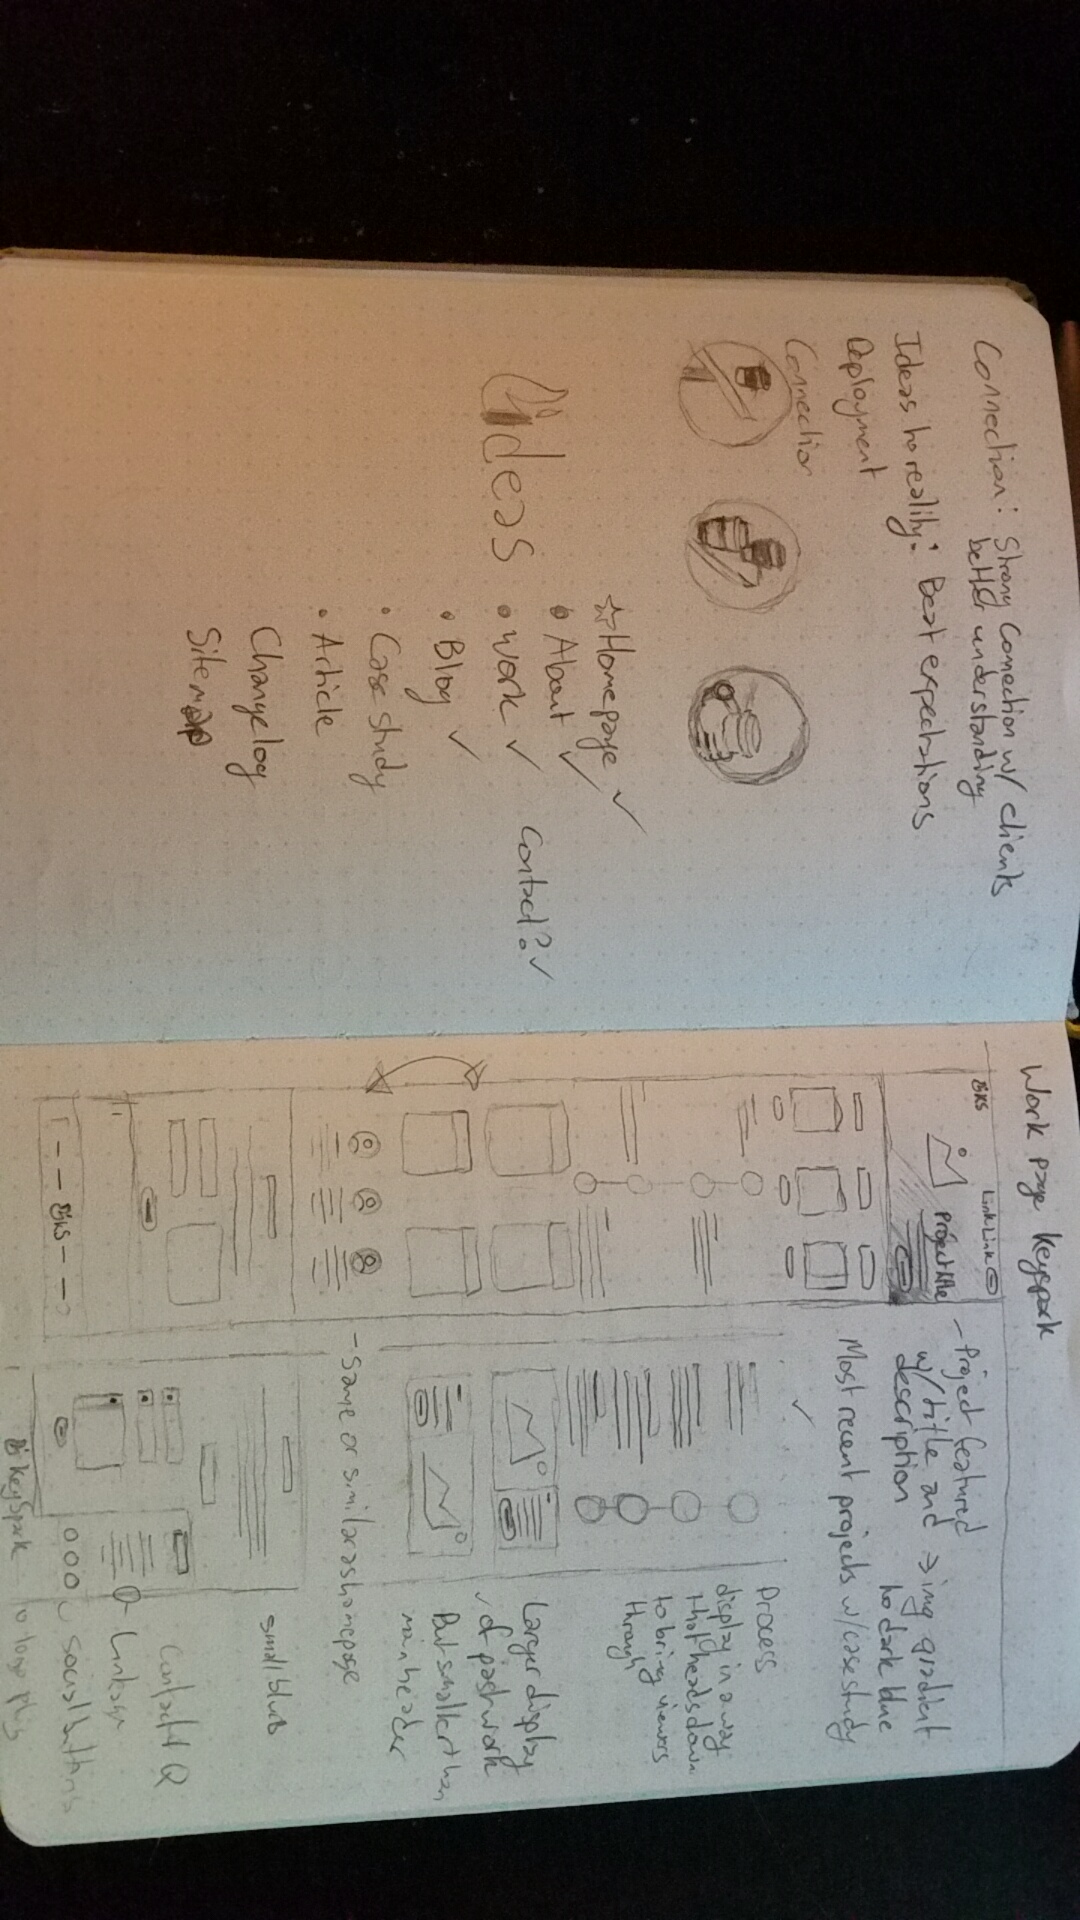 Connection: Strong Connection w/ clients
better understanding
Ideas to reality: Beat expectations
Deployment
Connection
Homepage
About
Work
Contact?
Blog
ideas
Case study
Article
Changelog
Sitemap
Work page Keyspark
KS
Link Link
Project title
- Project featured
w/ title and
description
→ img gradient
to dark blue
Most recent projects w/ case study
Process
display in a way
that heads down
to bring viewers
through
Larger display
of past work
But smaller than
main header
- same or similar as homepage
small blurb
Contact + Q
Linkage
social buttons
KS
KeySpark